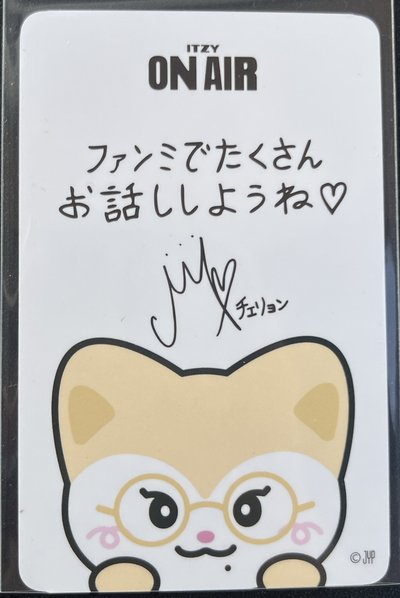 ITZY
ON AIR
ファンミでたくさん
お話ししようね♡
チェリョン